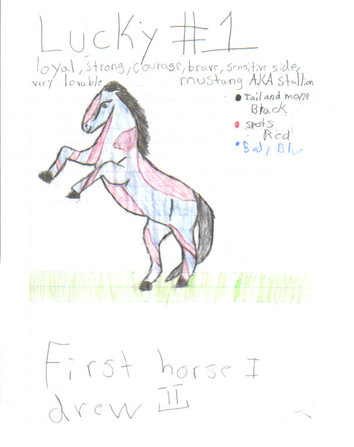 Lucky #1
loyal, strong, courage, brave, sensitive side,
very lovable mustang AKA stallion
Tail and mane
Black
spots
Red
Body Blue
First horse I
drew II